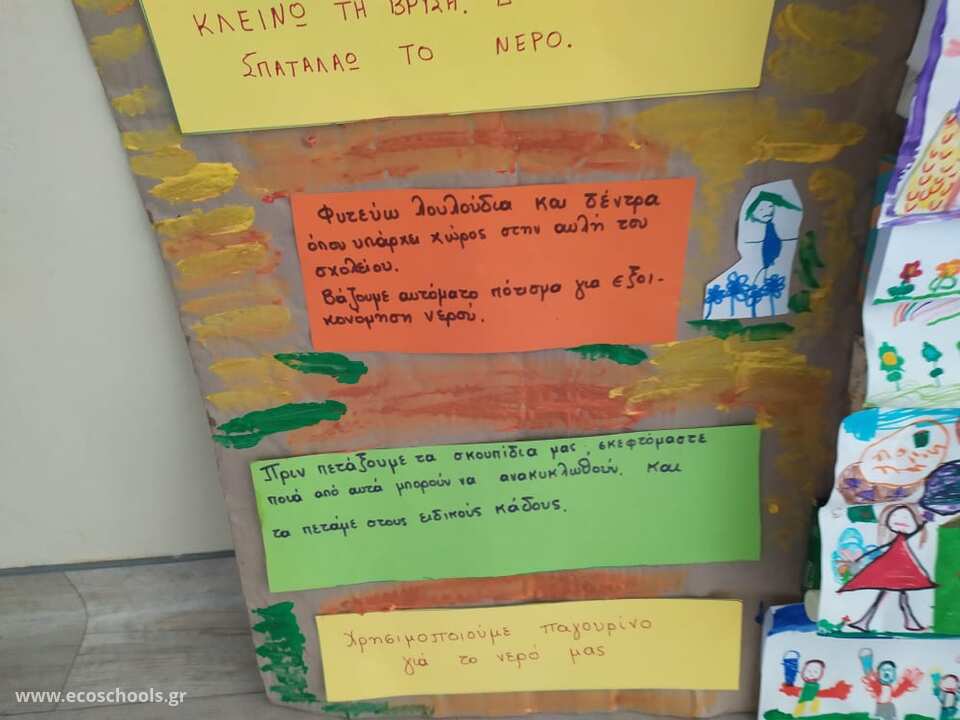 ΚΛΕΙΝΩ ΤΗ ΒΡΥΣΗ.
ΣΠΑΤΑΛΑΩ ΤΟ ΝΕΡΟ.
Φυτεύω λουλούδια και δέντρα
όπου υπάρχει χώρος στην αυλή του
σχολείου.
Βάζουμε αυτόματο πότισμα για εξοι-
κονόμηση νερού.
Πριν πετάξουμε τα σκουπίδια μας, σκεφτόμαστε
ποιά από αυτά μπορούν να ανακυκλωθούν. και
τα πετάμε στους ειδικούς κάδους.
Χρησιμοποιούμε παγουρίνο
γιά το νερό μας
www.ecoschools.gr